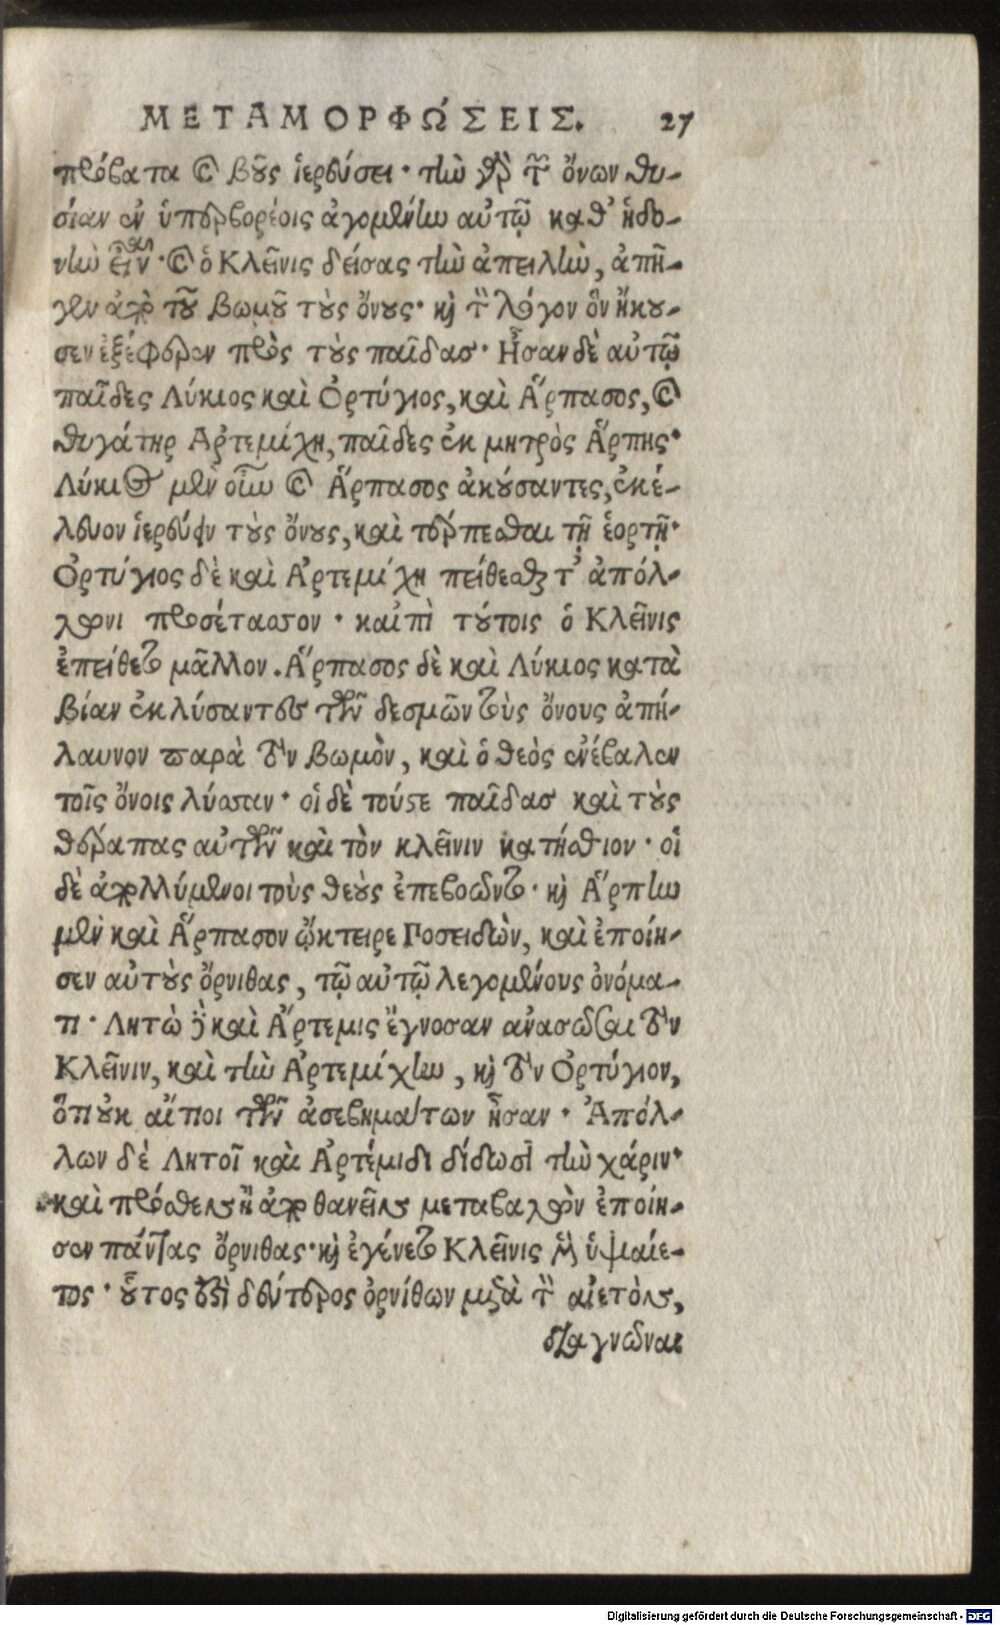 ΜΕΤΑΜΟΡΦΏΣΕΙΣ. 27
πρόβατα καὶ βοῦς ἱερεύσει· τὴν γὰρ τῶν ὄνων θυ-
σίαν ἐν ὑπερβορέοις ἀγομένην αὐτῷ καθ' ἡδο-
νὴν εἶναι· καὶ ὁ Κλεῖνις δείσας τὴν ἀπειλὴν, ἀπῆ-
γεν ἀπὸ τοῦ βωμοῦ τοὺς ὄνους· καὶ τὸν λόγον ὃν ἤκου-
σεν ἐξέφερεν πρὸς τοὺς παῖδασ· Ἦσαν δὲ αὐτῷ
παῖδες Λύκιος καὶ Ὀρτύγιος, καὶ Ἅρπασος, καὶ
θυγάτηρ Ἀρτεμίχη, παῖδες ἐκ μητρὸς Ἅρπης·
Λύκιος μὲν οὖν καὶ Ἅρπασος ἀκούσαντες, ἐκέ-
λευον ἱερεύειν τοὺς ὄνους, καὶ τέρπεσθαι τῇ ἑορτῇ·
Ὀρτύγιος δὲ καὶ Ἀρτεμίχη πείθεσθαι τ' ἀπόλ-
λωνι προσέτασσον· καἰπὶ τούτοις ὁ Κλεῖνις
ἐπείθετο μᾶλλον. Ἅρπασος δὲ καὶ Λύκιος κατὰ
βίαν ἐκλύσαντες τῶν δεσμῶν τοὺς ὄνους ἀπή-
λαυνον παρὰ τὸν βωμὸν, καὶ ὁ θεὸς ἐνέβαλεν
τοῖς ὄνοις λύσσαν· οἱ δὲ τούστε παῖδασ καὶ τοὺς
θεράπας αὐτῶν καὶ τὸν κλεῖνιν κατήσθιον· οἱ
δὲ ἀπολλύμενοι τοὺς θεοὺς ἐπεβοῶντο· καὶ Ἅρπην
μὲν καὶ Ἅρπασον ᾤκτειρε Ποσειδῶν, καὶ ἐποίη-
σεν αὐτοὺς ὄρνιθας, τῷ αὐτῷ λεγομένους ὀνόμα-
τι· Λητὼ δὲ καὶ Ἄρτεμις ἔγνωσαν ἀνασῶσαι τὸν
Κλεῖνιν, καὶ τὴν Ἀρτεμίχην, καὶ τὸν Ὀρτύγιον,
ὅτι οὐκ αἴτιοι τῶν ἀσεβημάτων ἦσαν· Ἀπόλ-
λων δὲ Λητοῖ καὶ Ἀρτέμιδι δίδωσι τὴν χάριν·
καὶ πρόσθεν ἢ ἀποθανεῖν μεταβαλὼν ἐποίη-
σεν πάντας ὄρνιθας· καὶ ἐγένετο Κλεῖνις μὲν ὑψιαίε-
τος· οὗτος ἐστὶ δεύτερος ὀρνίθων μετὰ τὸν αἰετὸν,
διαγνῶναι
Digitalisierung gefördert durch die Deutsche Forschungsgemeinschaft - DFG